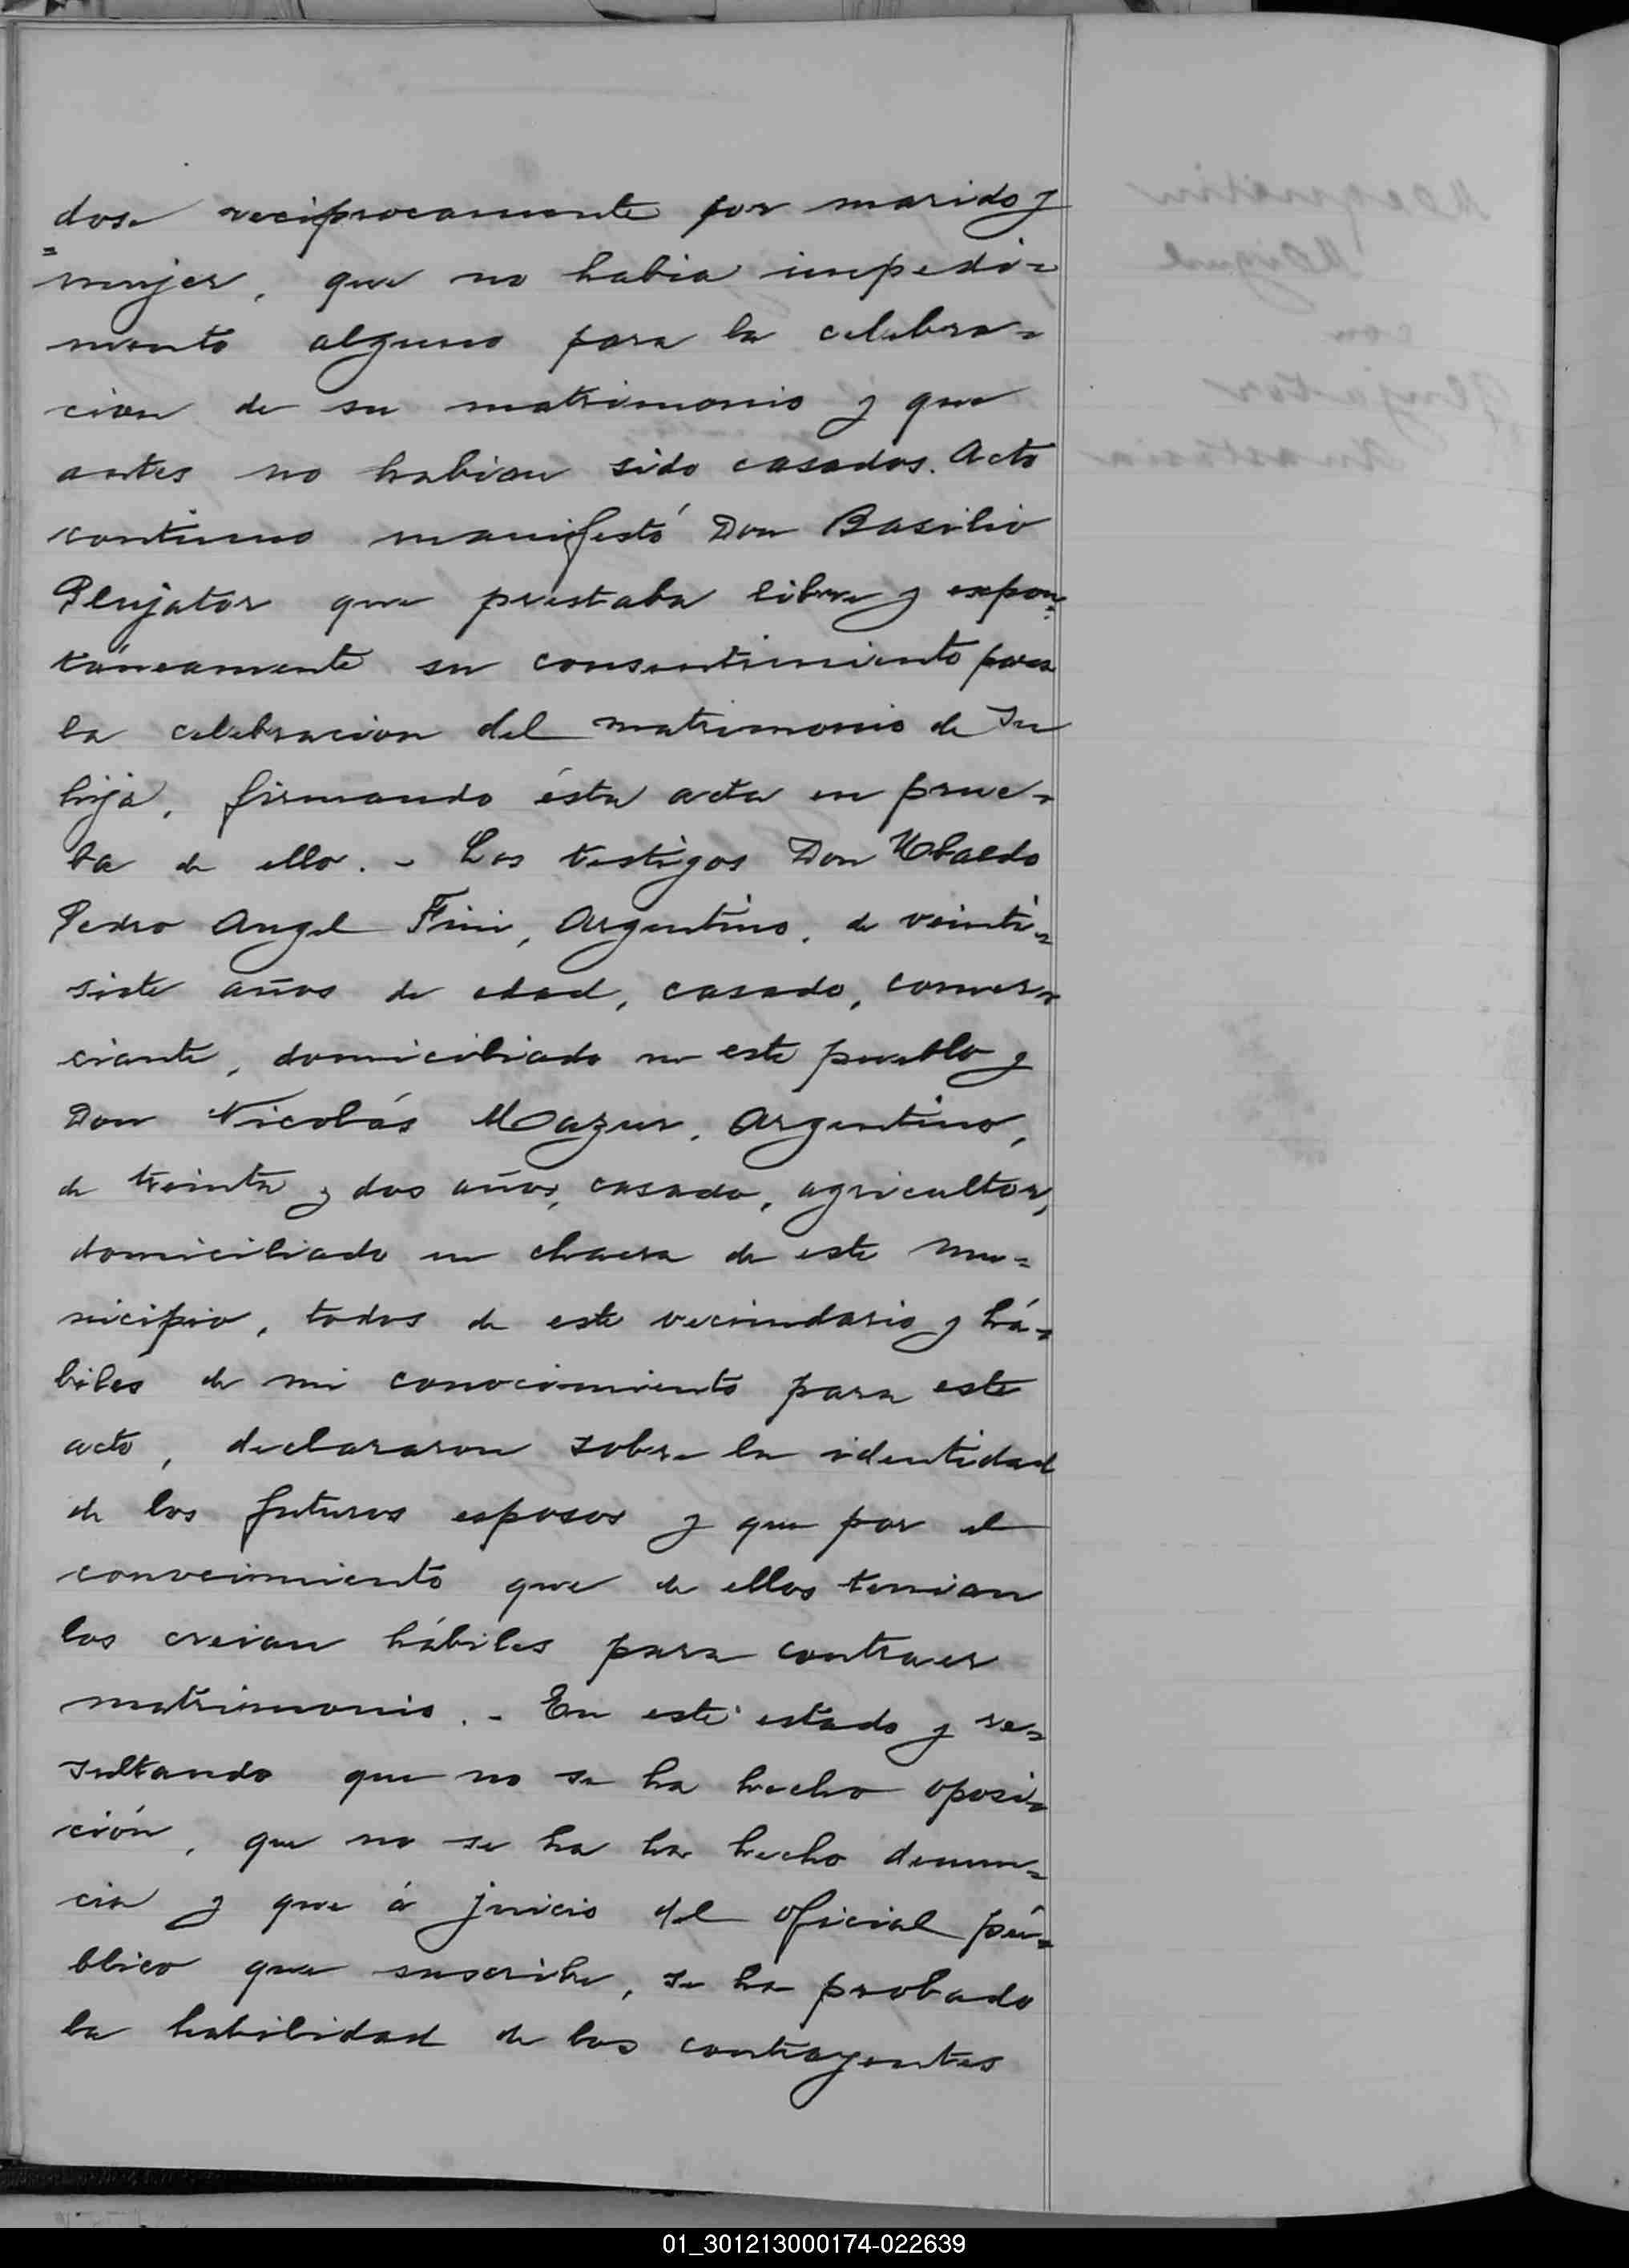 dose reciprocamente por marido y
=mujer, que no habia impedi=
mento alguno para la celebra=
cion de su matrimonio y que
antes no habian sido casados. Acto
continuo manifestó Don Basilio
Plujator que prestaba libre y expon=
táneamente su consentimiento para
la celebracion del matrimonio de su
hija, firmando ésta acta en prue=
ba de ello. - Los testigos Don Ubaldo
Pedro Angel Fini, Argentino, de veinti=
siete años de edad, casado, comer=
ciante, domiciliado en este pueblo y
Don Nicolás Mazur, Argentino,
de treinta y dos años, casado, agricultor,
domiciliado en chacra de este mu=
nicipio, todos de este vecindario y há=
biles de mi conocimiento para este
acto, declararon sobre la identidad
de los futuros esposos y que por el
conocimiento que de ellos tenian
los creian hábiles para contraer
matrimonio. - En este estado y re=
sultando que no se ha hecho oposi=
ción, que no se ha ha hecho denun=
cia y que á juicio del oficial pú=
blico que suscribe, se ha probado
la habilidad de los contrayentes
01_301213000174-022639